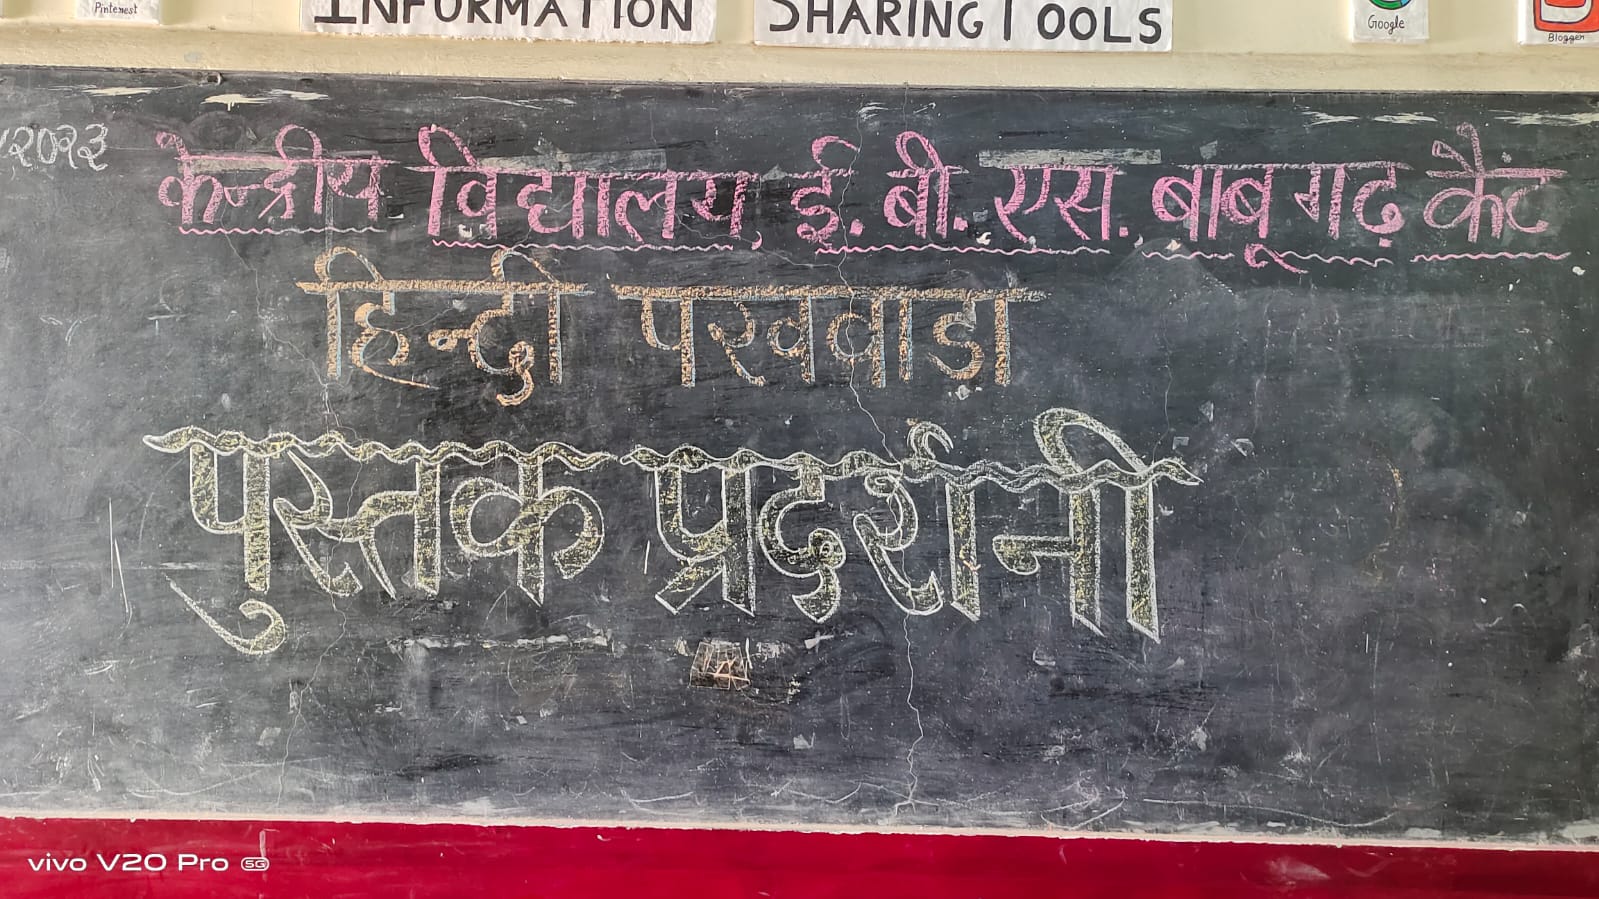 Pinterest
INFORMATION SHARING TOOLS
Google
Blogger
/२०२३
केन्द्रीय विद्यालय, ई. बी. एस. बाबूगढ़ कैंट
हिन्दी पखवाड़ा
पुस्तक प्रदर्शनी
vivo V20 Pro 5G